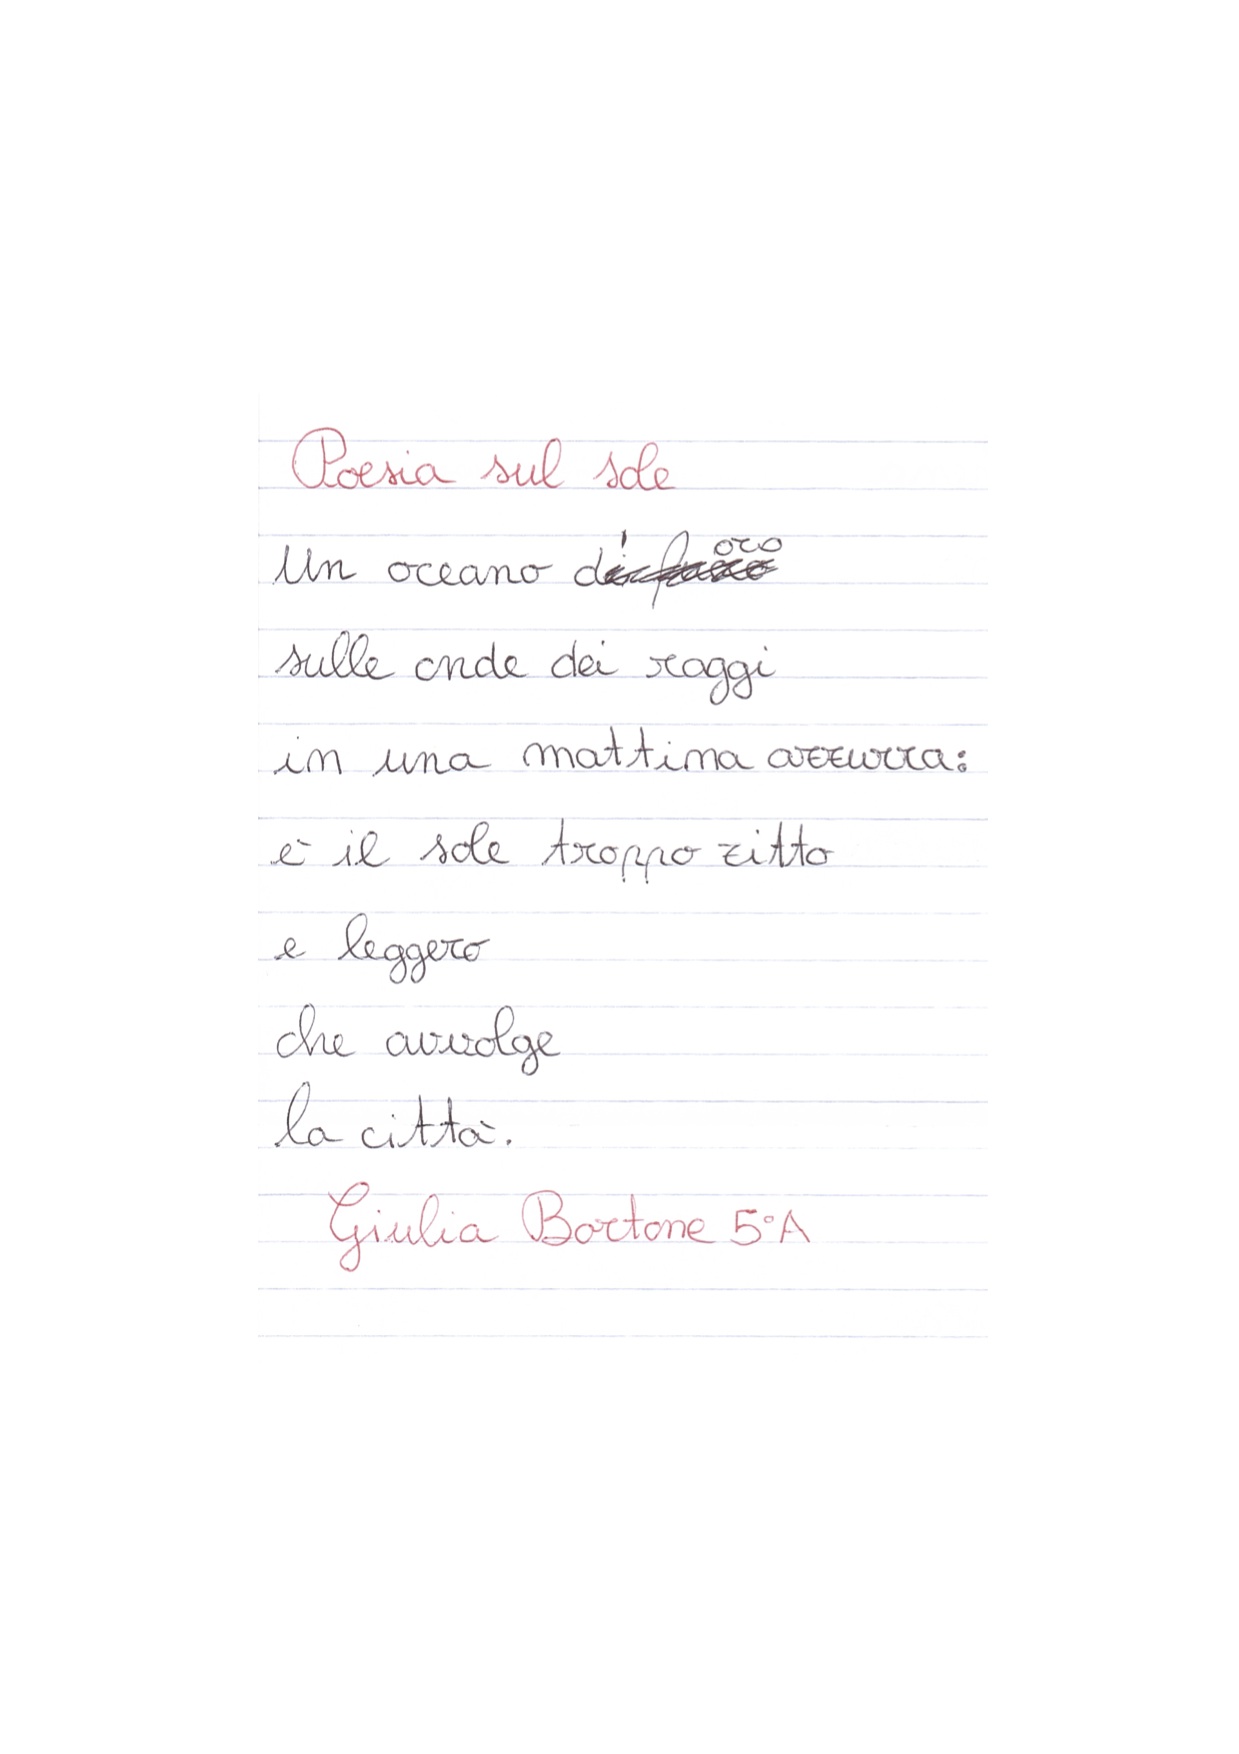 Poesia sul sole
Un oceano d'oro
sulle onde dei raggi
in una mattina azzurra:
è il sole troppo zitto
e leggero
che avvolge
la città.
Giulia Bortone 5°A